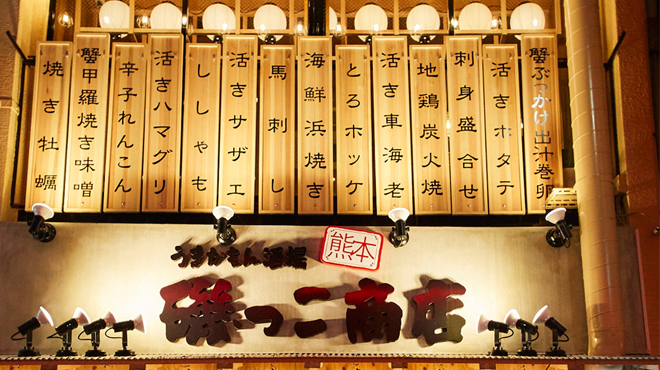 蟹ぶっかけ出汁巻卵
活きホタテ
刺身盛合せ
地鶏炭火焼
活き車海老
とろホッケ
海鮮浜焼き
馬刺し
活きサザエ
ししゃも
活きハマグリ
辛子れんこん
蟹甲羅焼き味噌
焼き牡蠣
うまかもん酒場
熊本
磯っこ商店